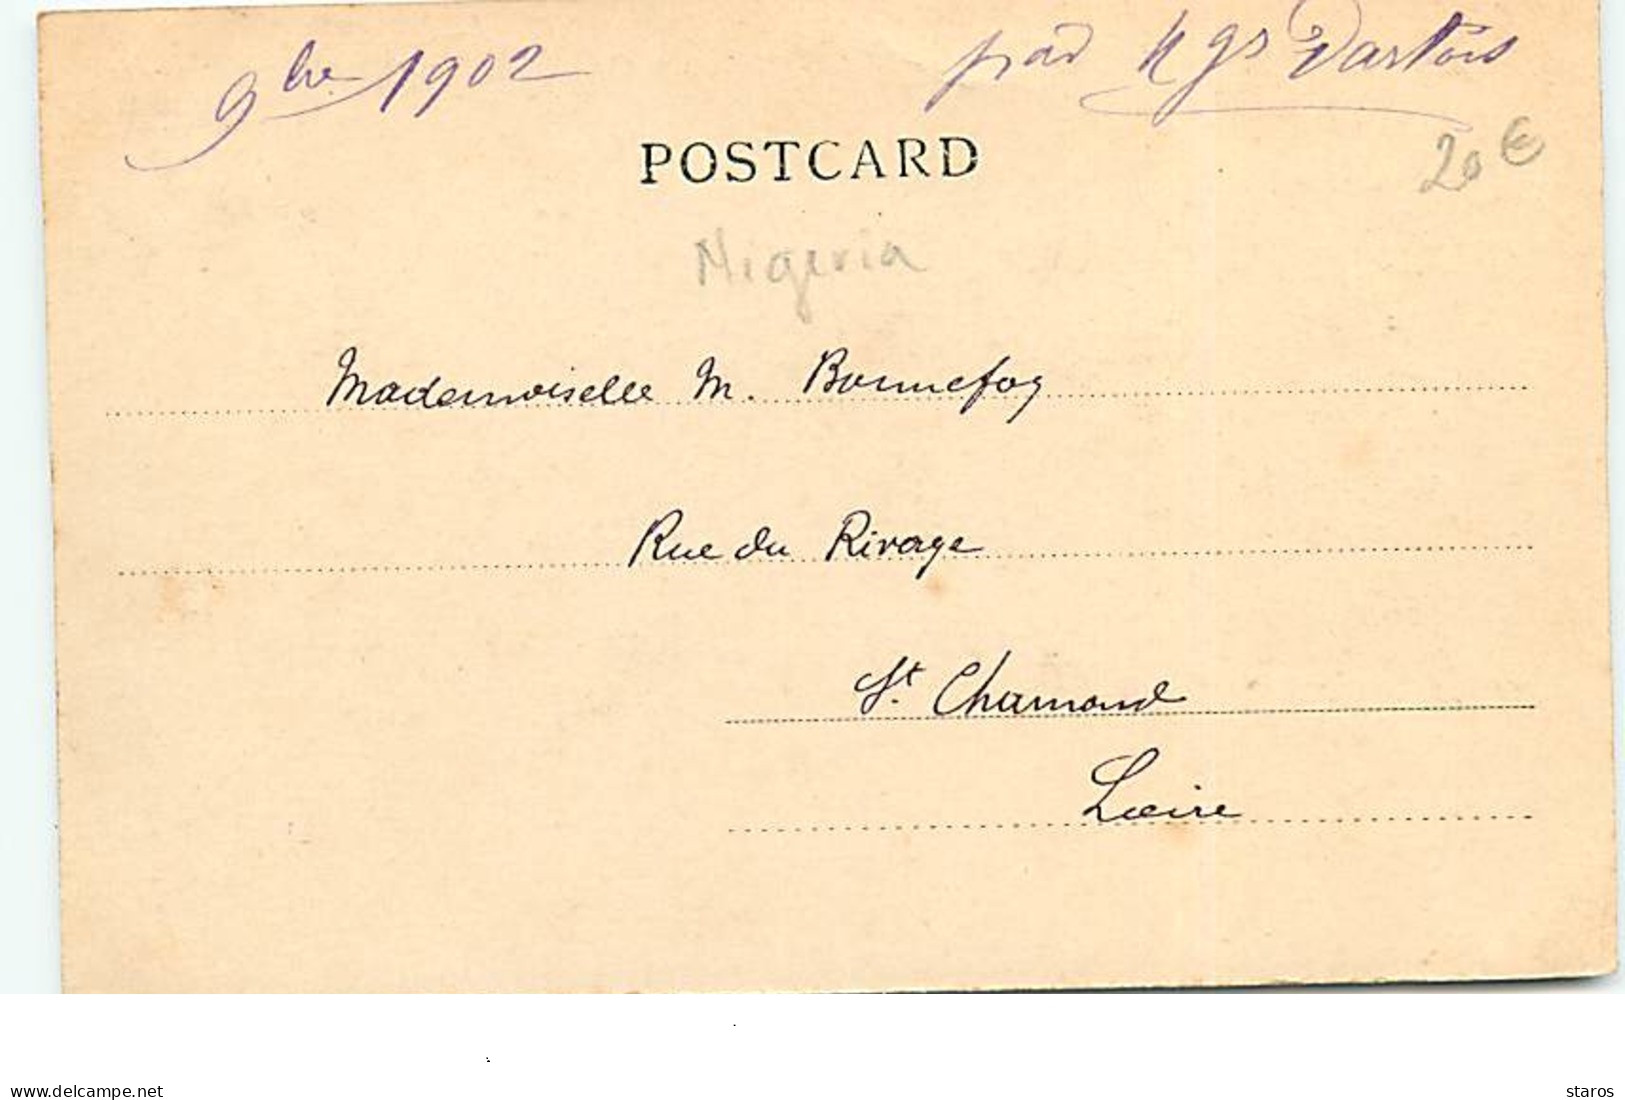 9bre 1902
Dartois
POSTCARD
20 €
Nigeria
Mademoiselle M. Bonnefoy
Rue du Rivage
St. Chamond
Loire
www.delcampe.net
staros